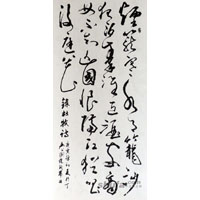 煙籠寒水月籠沙
夜泊秦淮近酒家商
女不知亡國恨隔江猶唱
後庭花 錄杜牧詩